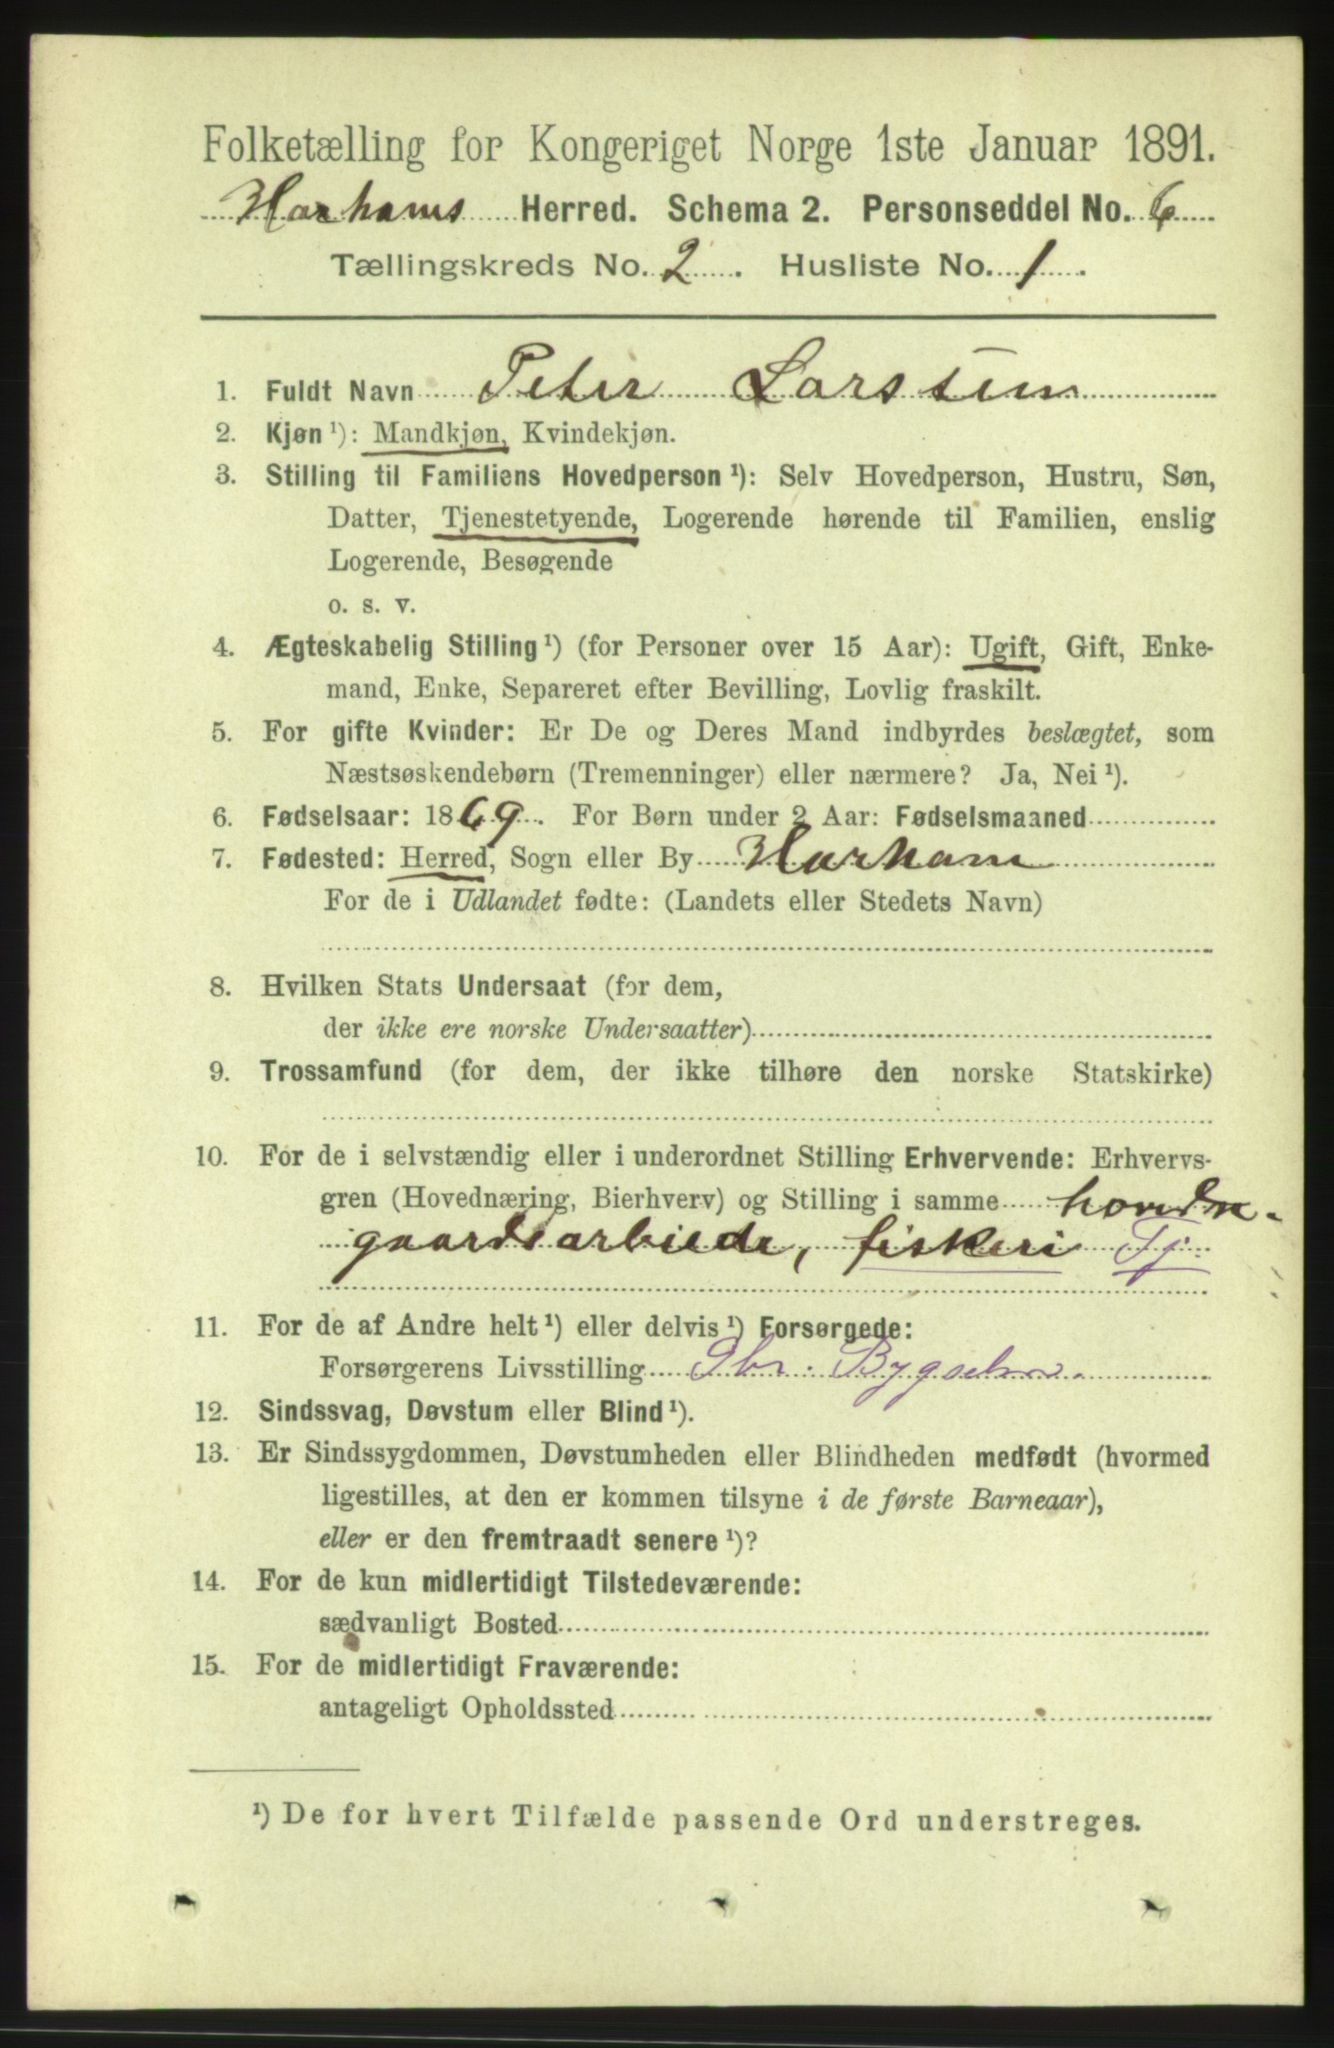 Folketælling for Kongeriget Norge 1ste Januar 1891.
Harhams Herred. Schema 2. Personseddel No. 6
Tællingskreds No. 2. Husliste No. 1.
1. Fuldt Navn Peter Larssen
2. Kjøn ¹): Mandkjøn, Kvindekjøn.
3. Stilling til Familiens Hovedperson ¹): Selv Hovedperson, Hustru, Søn,
Datter, Tjenestetyende, Logerende hørende til Familien, enslig
Logerende, Besøgende
o. s. v.
4. Ægteskabelig Stilling ¹) (for Personer over 15 Aar): Ugift, Gift, Enke-
mand, Enke, Separeret efter Bevilling, Lovlig fraskilt.
5. For gifte Kvinder: Er De og Deres Mand indbyrdes beslægtet, som
Næstsøskendebørn (Tremenninger) eller nærmere? Ja, Nei ¹).
6. Fødselsaar: 1869. For Børn under 2 Aar: Fødselsmaaned
7. Fødested: Herred, Sogn eller By Harham
For de i Udlandet fødte: (Landets eller Stedets Navn)
8. Hvilken Stats Undersaat (for dem,
der ikke ere norske Undersaatter)
9. Trossamfund (for dem, der ikke tilhøre den norske Statskirke)
10. For de i selvstændig eller i underordnet Stilling Erhvervende: Erhvervs-
gren (Hovednæring, Bierhverv) og Stilling i samme
gaardsarbeide, fiskeri Tj
11. For de af Andre helt ¹) eller delvis ¹) Forsørgede:
Forsørgerens Livsstilling Gbr.
12. Sindssvag, Døvstum eller Blind ¹).
13. Er Sindssygdommen, Døvstumheden eller Blindheden medfødt (hvormed
ligestilles, at den er kommen tilsyne i de første Barneaar),
eller er den fremtraadt senere ¹)?
14. For de kun midlertidigt Tilstedeværende:
sædvanligt Bosted
15. For de midlertidigt Fraværende:
antageligt Opholdssted
¹) De for hvert Tilfælde passende Ord understreges.